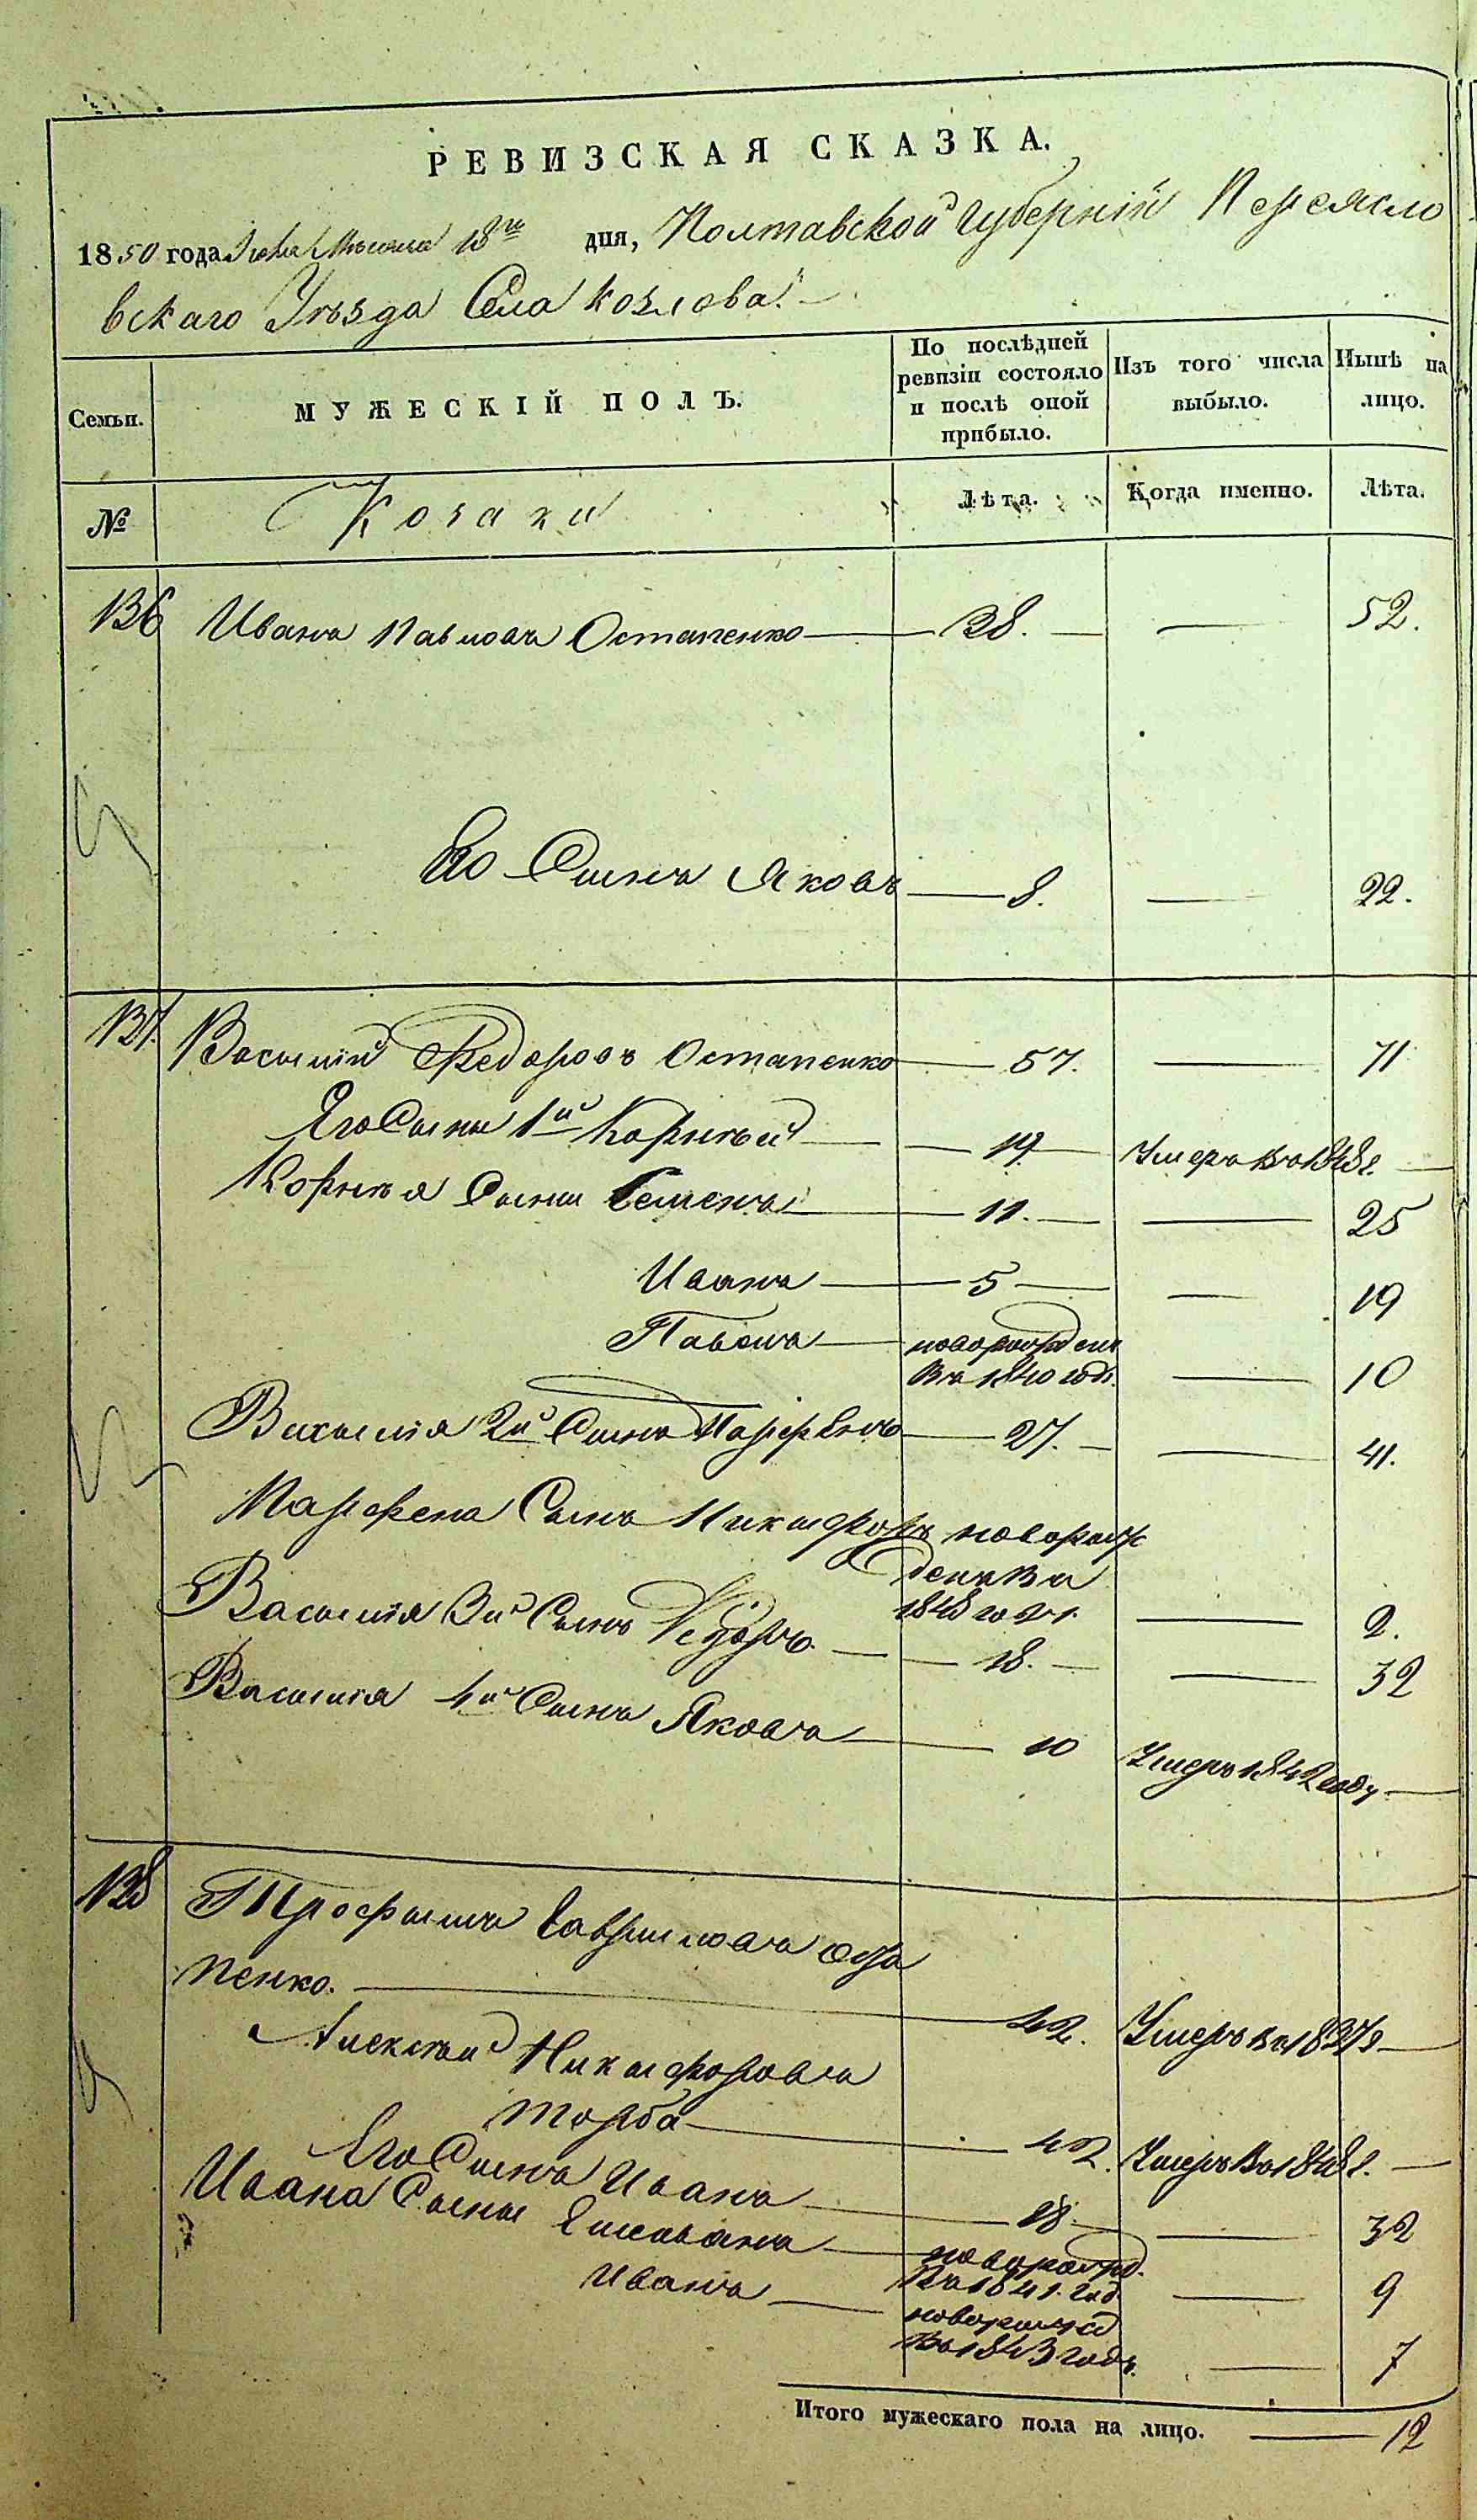 РЕВИЗСКАЯ СКАЗКА.
1850 года Июня Месяца 18го дня, Полтавской Губерніи Переясло
вскаго Уѣзда Села Козлова.
Семьи.
МУЖЕСКІЙ ПОЛЪ.
По послѣдней ревизіи состояло и послѣ оной прибыло.
Изъ того числа выбыло.
Нынѣ на лицо.
№
Козаки
Лѣта.
Когда именно.
Лѣта.
136 Иванъ Павловъ Остапенко 38. 52.
Его Сынъ Яковъ 8. 22.
137. Василий Федоровъ Остапенко 57. 71
Его Сыны 1й Корнѣй 19. Умеръ въ 1848 г.
Корнѣя Сыны Семенъ 11. 25
Иванъ 5 19
Павелъ новорожденъ
въ 1840 годѣ. 10
Василія 2й Сынъ Парфенъ 27. 41.
Парфена Сынъ Никифоръ новорож
денъ въ
1848 годѣ. 2.
Василія 3й Сынъ Федоръ 18. 32
Василія 4й Сынъ Яковъ 10 Умеръ 1842 году
138 Трофимъ Гавриловъ Оста
пенко. 42. Умеръ въ 1837 г
Алексѣй Никифоровъ
Торба 42. Умеръ въ 1848 г.
Его Сынъ Иванъ 18. 32
Ивана Сыны Емельянъ новорожд.
въ 1841. год 9
Иванъ новорожд
въ 1843 годѣ. 7
Итого мужескаго пола на лицо. 12